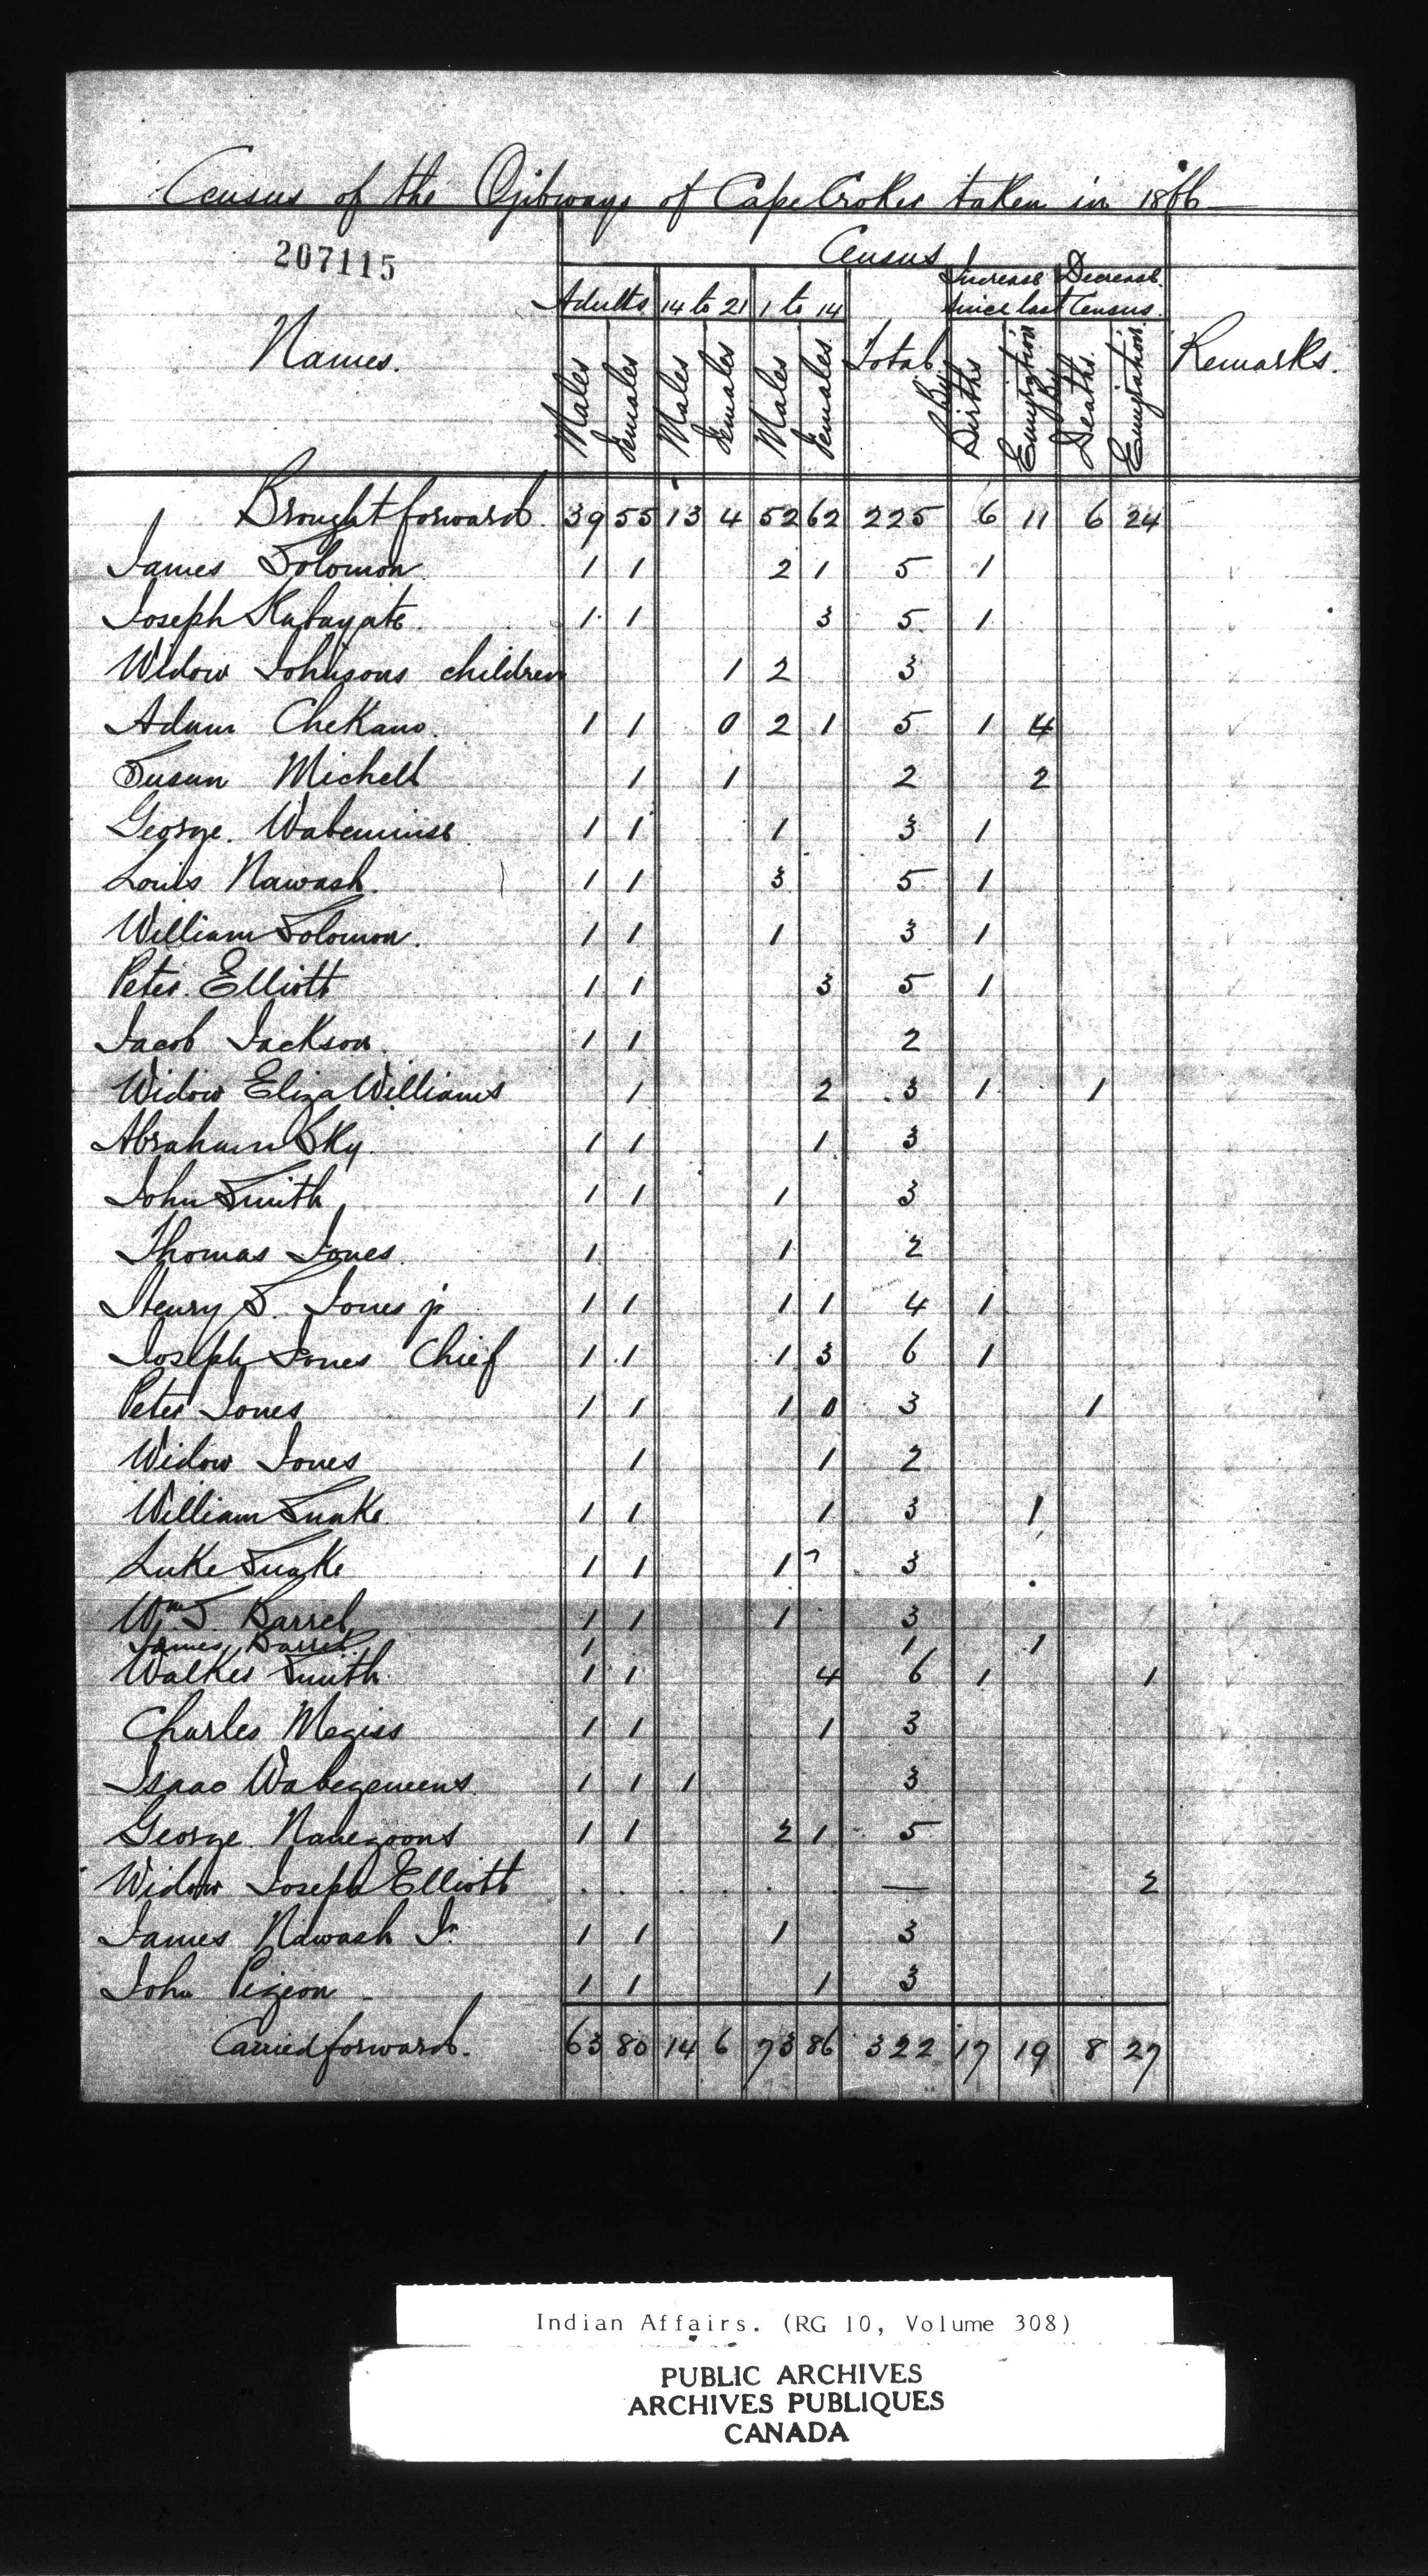 Census of the Ojibways of Cape Croker taken in 1866
207115
Census
Increase Decrease
Adults 14 to 21 1 to 14 since last Census.
Names. Total Remarks.
Males Females Males Females Males Females By Births Emigration By Deaths. Emigration.
Brought forward 39 55 13 4 52 62 225 6 11 6 24
James Solomon 1 1 2 1 5 1
Joseph Kabayate 1 1 3 5 1
Widow Johnsons children 1 2 3
Adam Chekano. 1 1 0 2 1 5 1 4
Susan Michell 1 1 2 2
George Wabeminse 1 1 1 3 1
Louis Nawash. 1 1 3 5 1
William Solomon. 1 1 1 3 1
Peter Elliott 1 1 3 5 1
Jacob Jackson 1 1 2
Widow Eliza Williams 1 2 3 1 1
Abraham Sky. 1 1 1 3
John Smith 1 1 1 3
Thomas Jones. 1 1 2
Henry S. Jones jr 1 1 1 1 4 1
Joseph Jones Chief 1 1 1 3 6 1
Peter Jones 1 1 1 0 3 1
Widow Jones 1 1 2
William Snake 1 1 1 3 1
Luke Snake 1 1 1 3
Wm. S. Barrel 1 1 1 3
James Barrel 1 1 1
Walker Smith 1 1 4 6 1 1
Charles Megiss 1 1 1 3
Isaac Wabegeneens 1 1 1 3
George Nanegoons 1 1 2 1 5
Widow Joseph Elliott — 2
James Nawash Jr. 1 1 1 3
John Pigeon 1 1 1 3
Carried forward. 63 80 14 6 73 86 322 17 19 8 27
Indian Affairs. (RG 10, Volume 308)
PUBLIC ARCHIVES
ARCHIVES PUBLIQUES
CANADA